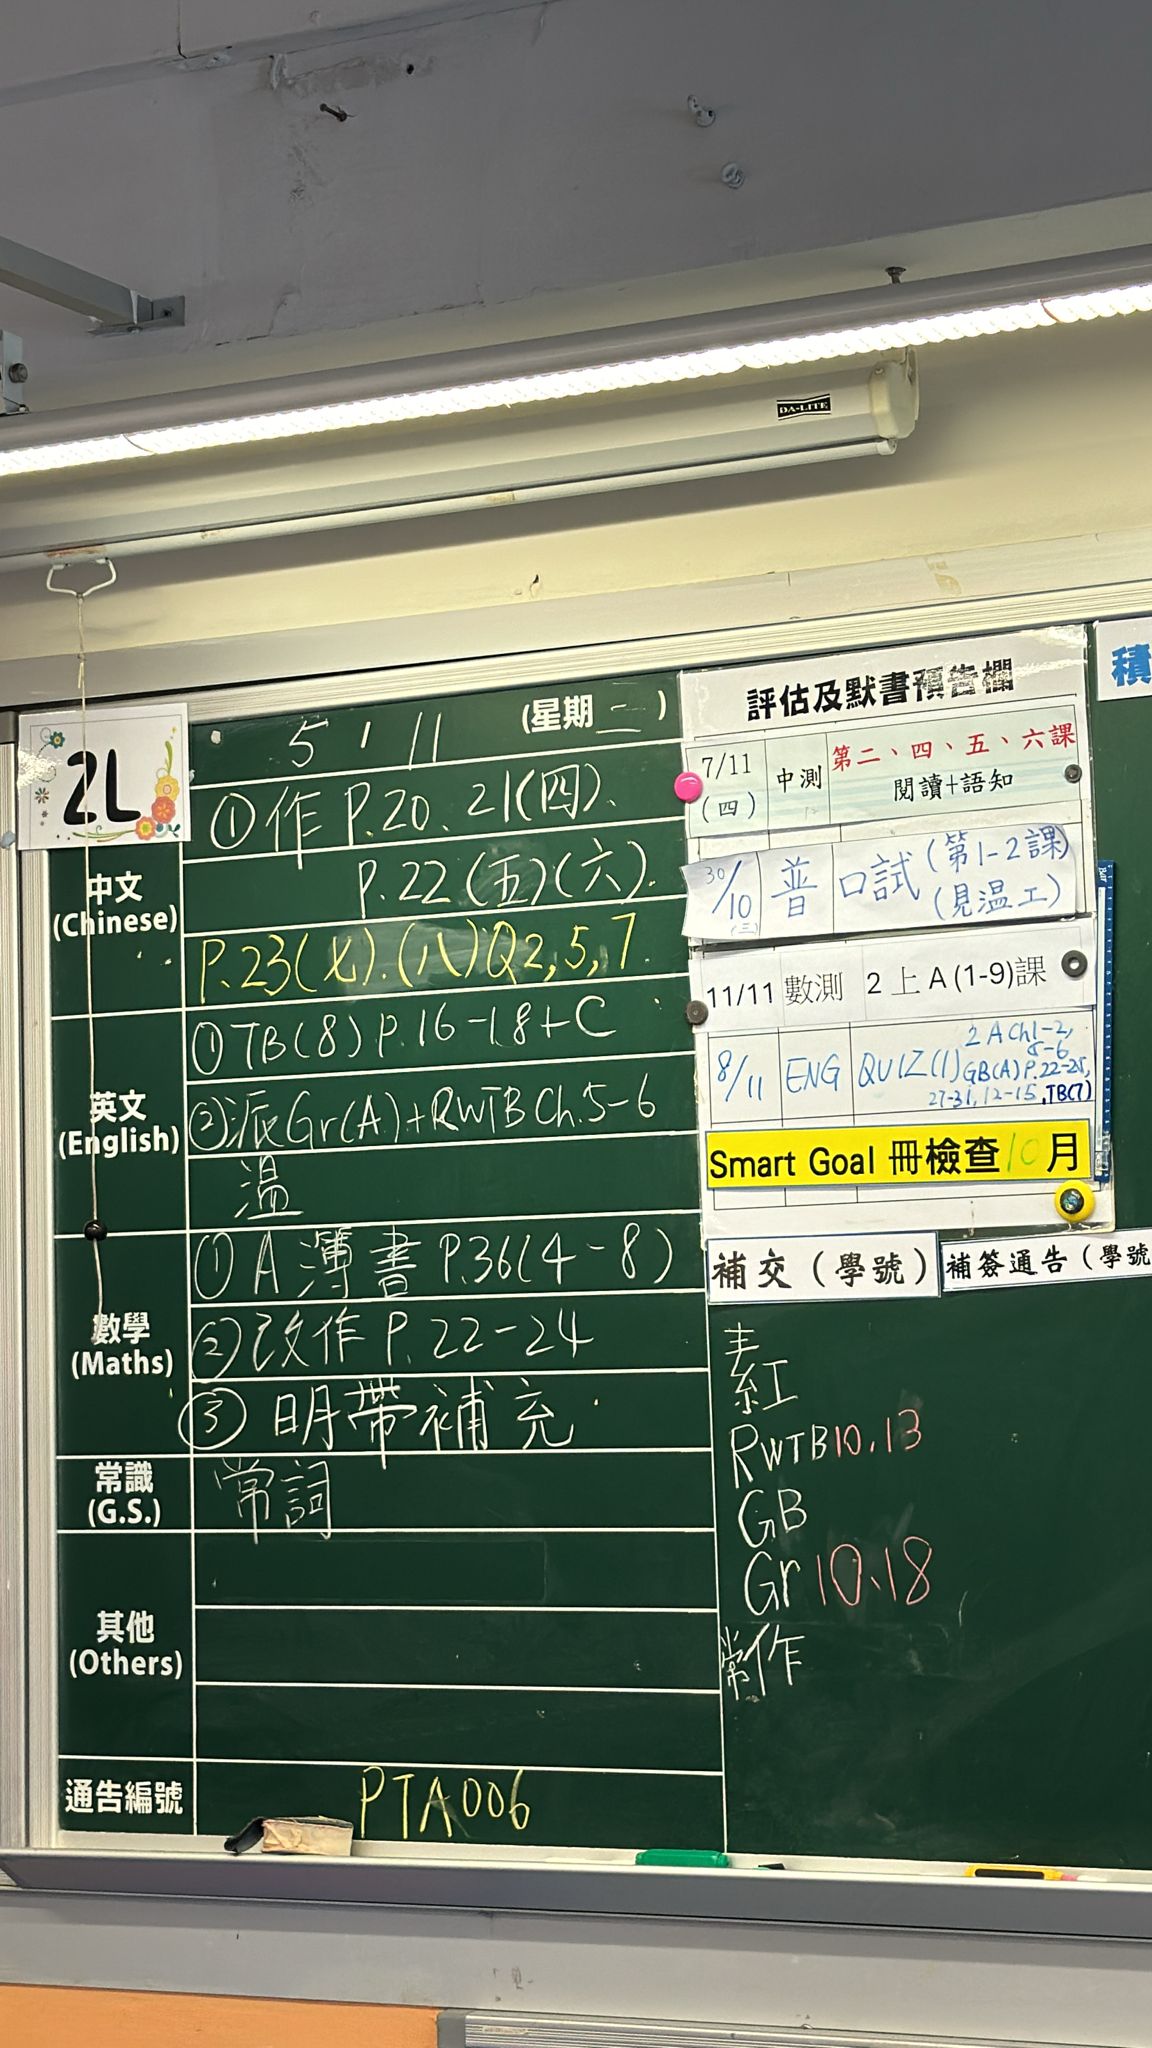 DA-LITE
2L
5 / 11 (星期二)
中文
(Chinese)
①作 P.20、21(四)、
P.22 (五)(六).
P.23(七).(八)Q2,5,7.
英文
(English)
①TB(8) P.16-18+C
②派Gr(A)+RWTB Ch.5-6
溫
數學
(Maths)
①A 簿書 P.36(4-8)
②改作 P. 22-24
③明帶補充
常識
(G.S.)
常詞
其他
(Others)
通告編號
PTA006
評估及默書預告欄
7/11
(四)
中測
第二、四、五、六課
閱讀+語知
30/10
(三)
普
口試 (第1-2課)
(見温工)
11/11 數測 2上A(1-9)課
8/11 ENG QUIZ(1) 2A Ch1-2,
5-6
GB(A) P.22-25,
27-31, 12-15, TB(7)
Smart Goal 冊檢查10月
補交(學號)
補簽通告(學號
紅
RWTB10.13
GB
Gr 10.18
常作
積